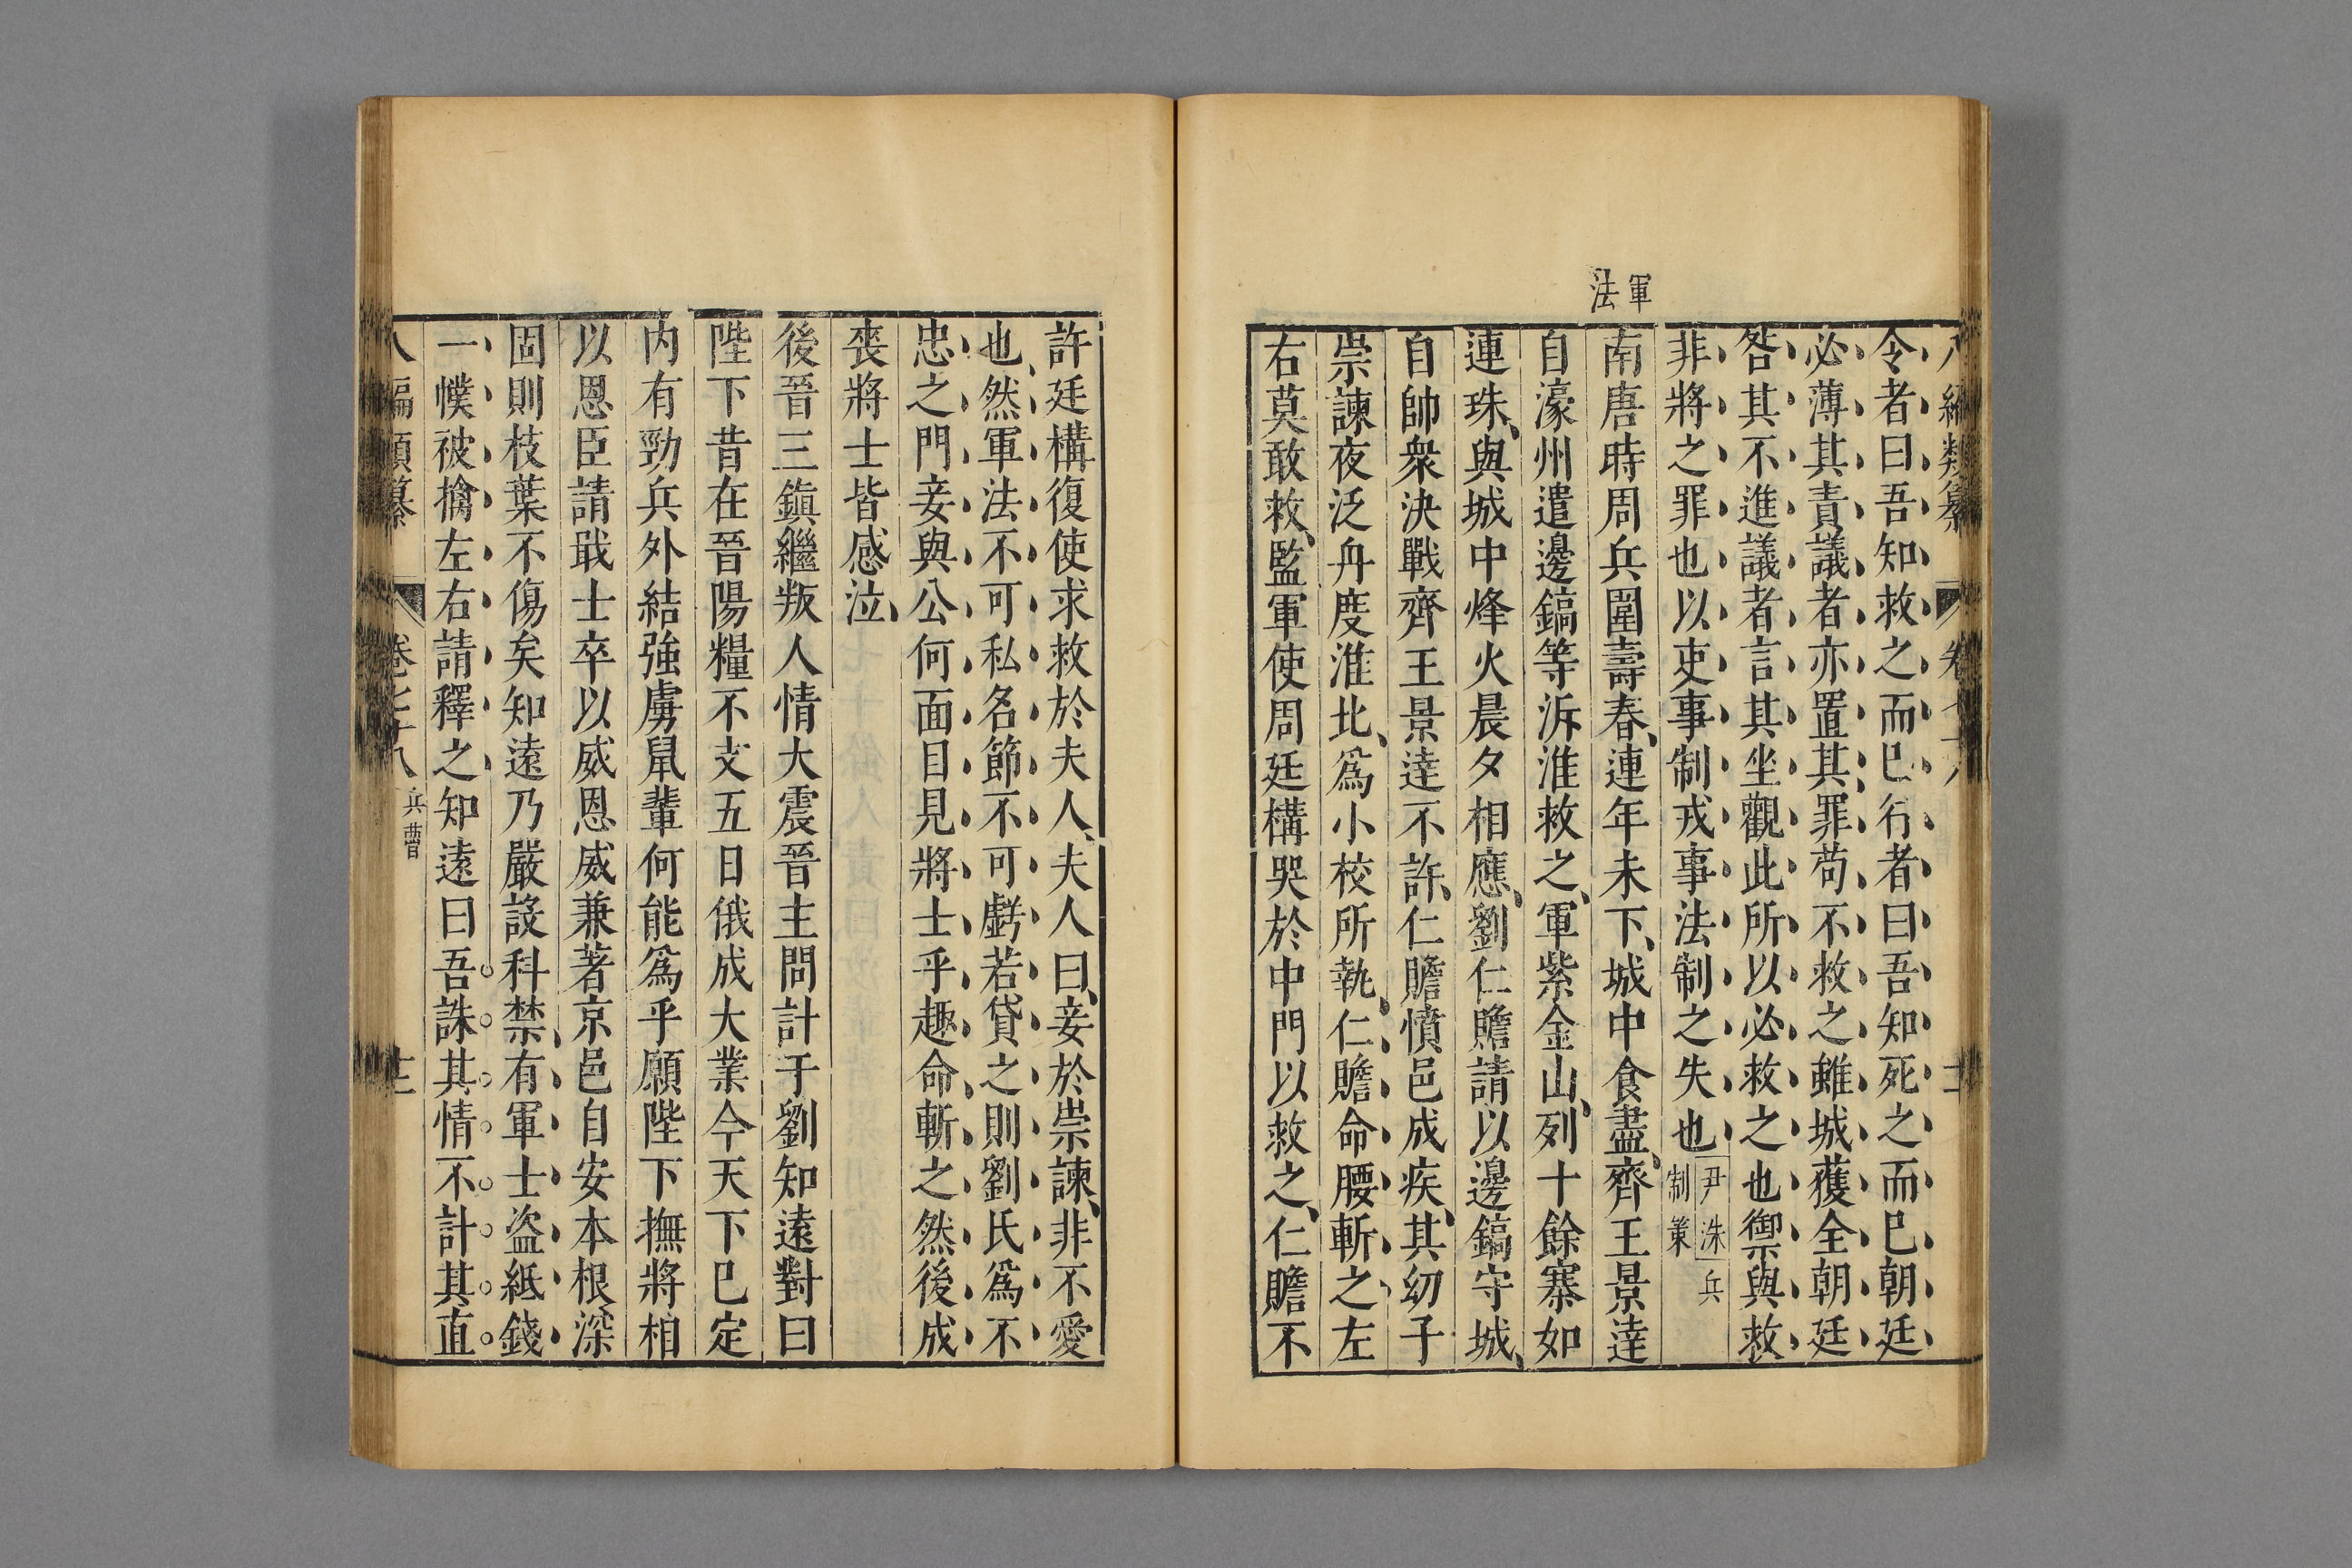 軍法
令者曰吾知救之而巳行者曰吾知死之而巳朝廷
必薄其責議者亦置其罪苟不救之雖城獲全朝廷
咎其不進議者言其坐觀此所以必救之也禦與救
非將之罪也以吏事制戎事法制之失也尹洙兵制策
南唐時周兵圍壽春連年未下城中食盡齊王景達
自濠州遣邊鎬等泝淮救之軍紫金山列十餘寨如
連珠與城中烽火晨夕相應劉仁贍請以邊鎬守城
自帥衆決戰齊王景達不許仁贍憤邑成疾其幼子
崇諫夜泛舟度淮北爲小校所執仁贍命腰斬之左
右莫敢救監軍使周廷構哭於中門以救之仁贍不
許廷構復使求救於夫人夫人曰妾於崇諫非不愛
也然軍法不可私名節不可虧若貸之則劉氏爲不
忠之門妾與公何面目見將士乎趣命斬之然後成
喪將士皆感泣
後晉三鎮繼叛人情大震晉主問計于劉知遠對曰
陛下昔在晉陽糧不支五日俄成大業今天下巳定
内有勁兵外結強虜鼠輩何能爲乎願陛下撫將相
以恩臣請戢士卒以威恩威兼著京邑自安本根深
固則枝葉不傷矣知遠乃嚴設科禁有軍士盜紙錢
一幞被擒左右請釋之知遠曰吾誅其情不計其直
八編類纂 卷七十八 兵曹